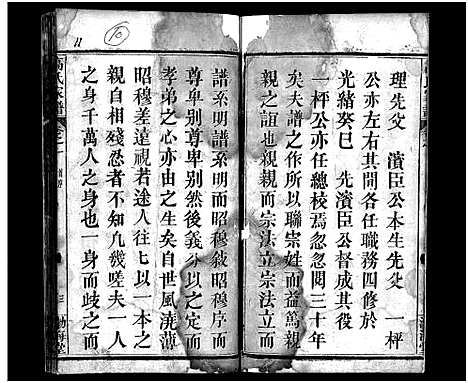 理先父 濱臣公本生先父 一枰
公亦左右其間各任職務四修於
光緒癸巳 先濱臣公督成其役
一枰公亦任總校焉忽忽閱三十年
矣夫譜之作所以聯崇姓而益篤親
親之誼也親親而宗法立宗法立而
譜系明譜系明而昭穆敘昭穆序而
尊卑別尊卑別然後義分以之定而
孝弟之心亦由之生矣自世風澆薄
昭穆差違視若途人往往以一本之
親自相殘忍者不知凡幾嗟夫一人
之身千萬人之身也一身而歧之而
高氏家譜
卷之一
三
渤海堂
11
10